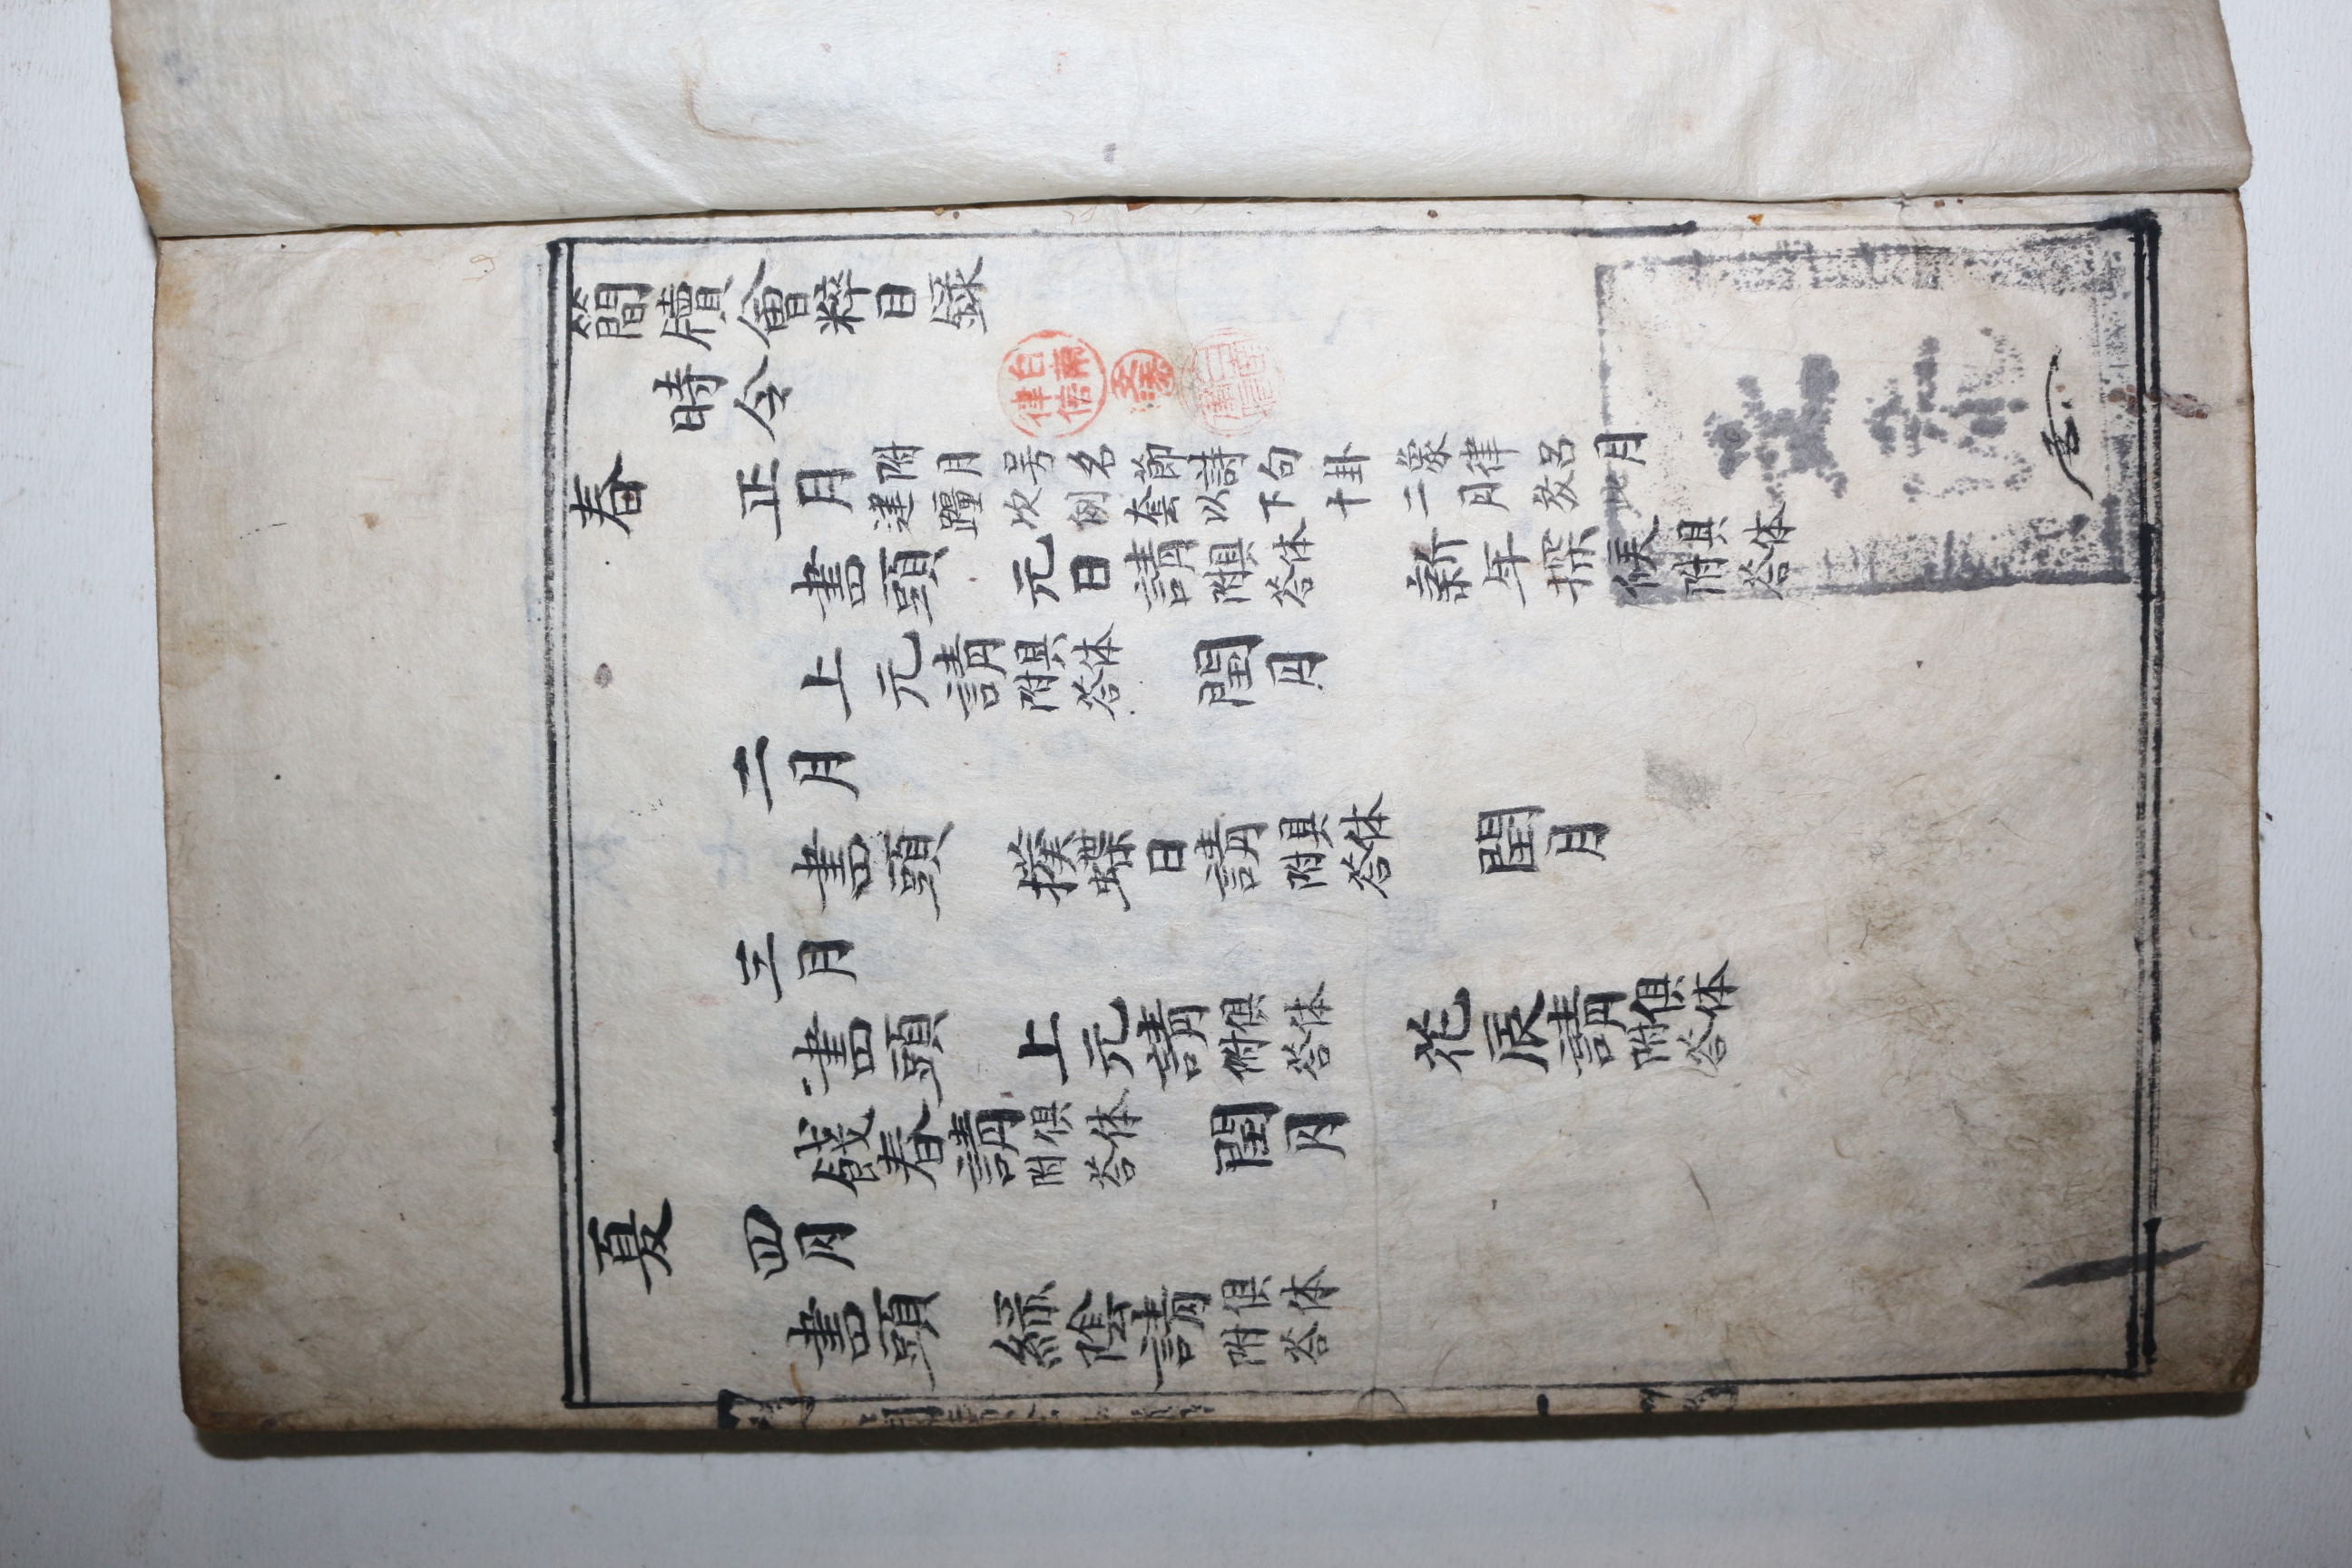 簡牘會粹目録
時令
春 正月 附月号名節詩句卦象律呂月
建躔次例套以下十二月倣此
書頭 元日請 具体附答 新年探候 具体附答
上元請 具体附答 閏月
二月
書頭 撲蝶日請 具体附答 閏月
三月
書頭 上元請 俱体附答 花辰請 俱体附答
餞春請 俱体附答 閏月
夏 四月
書頭 綠陰請 俱体附答